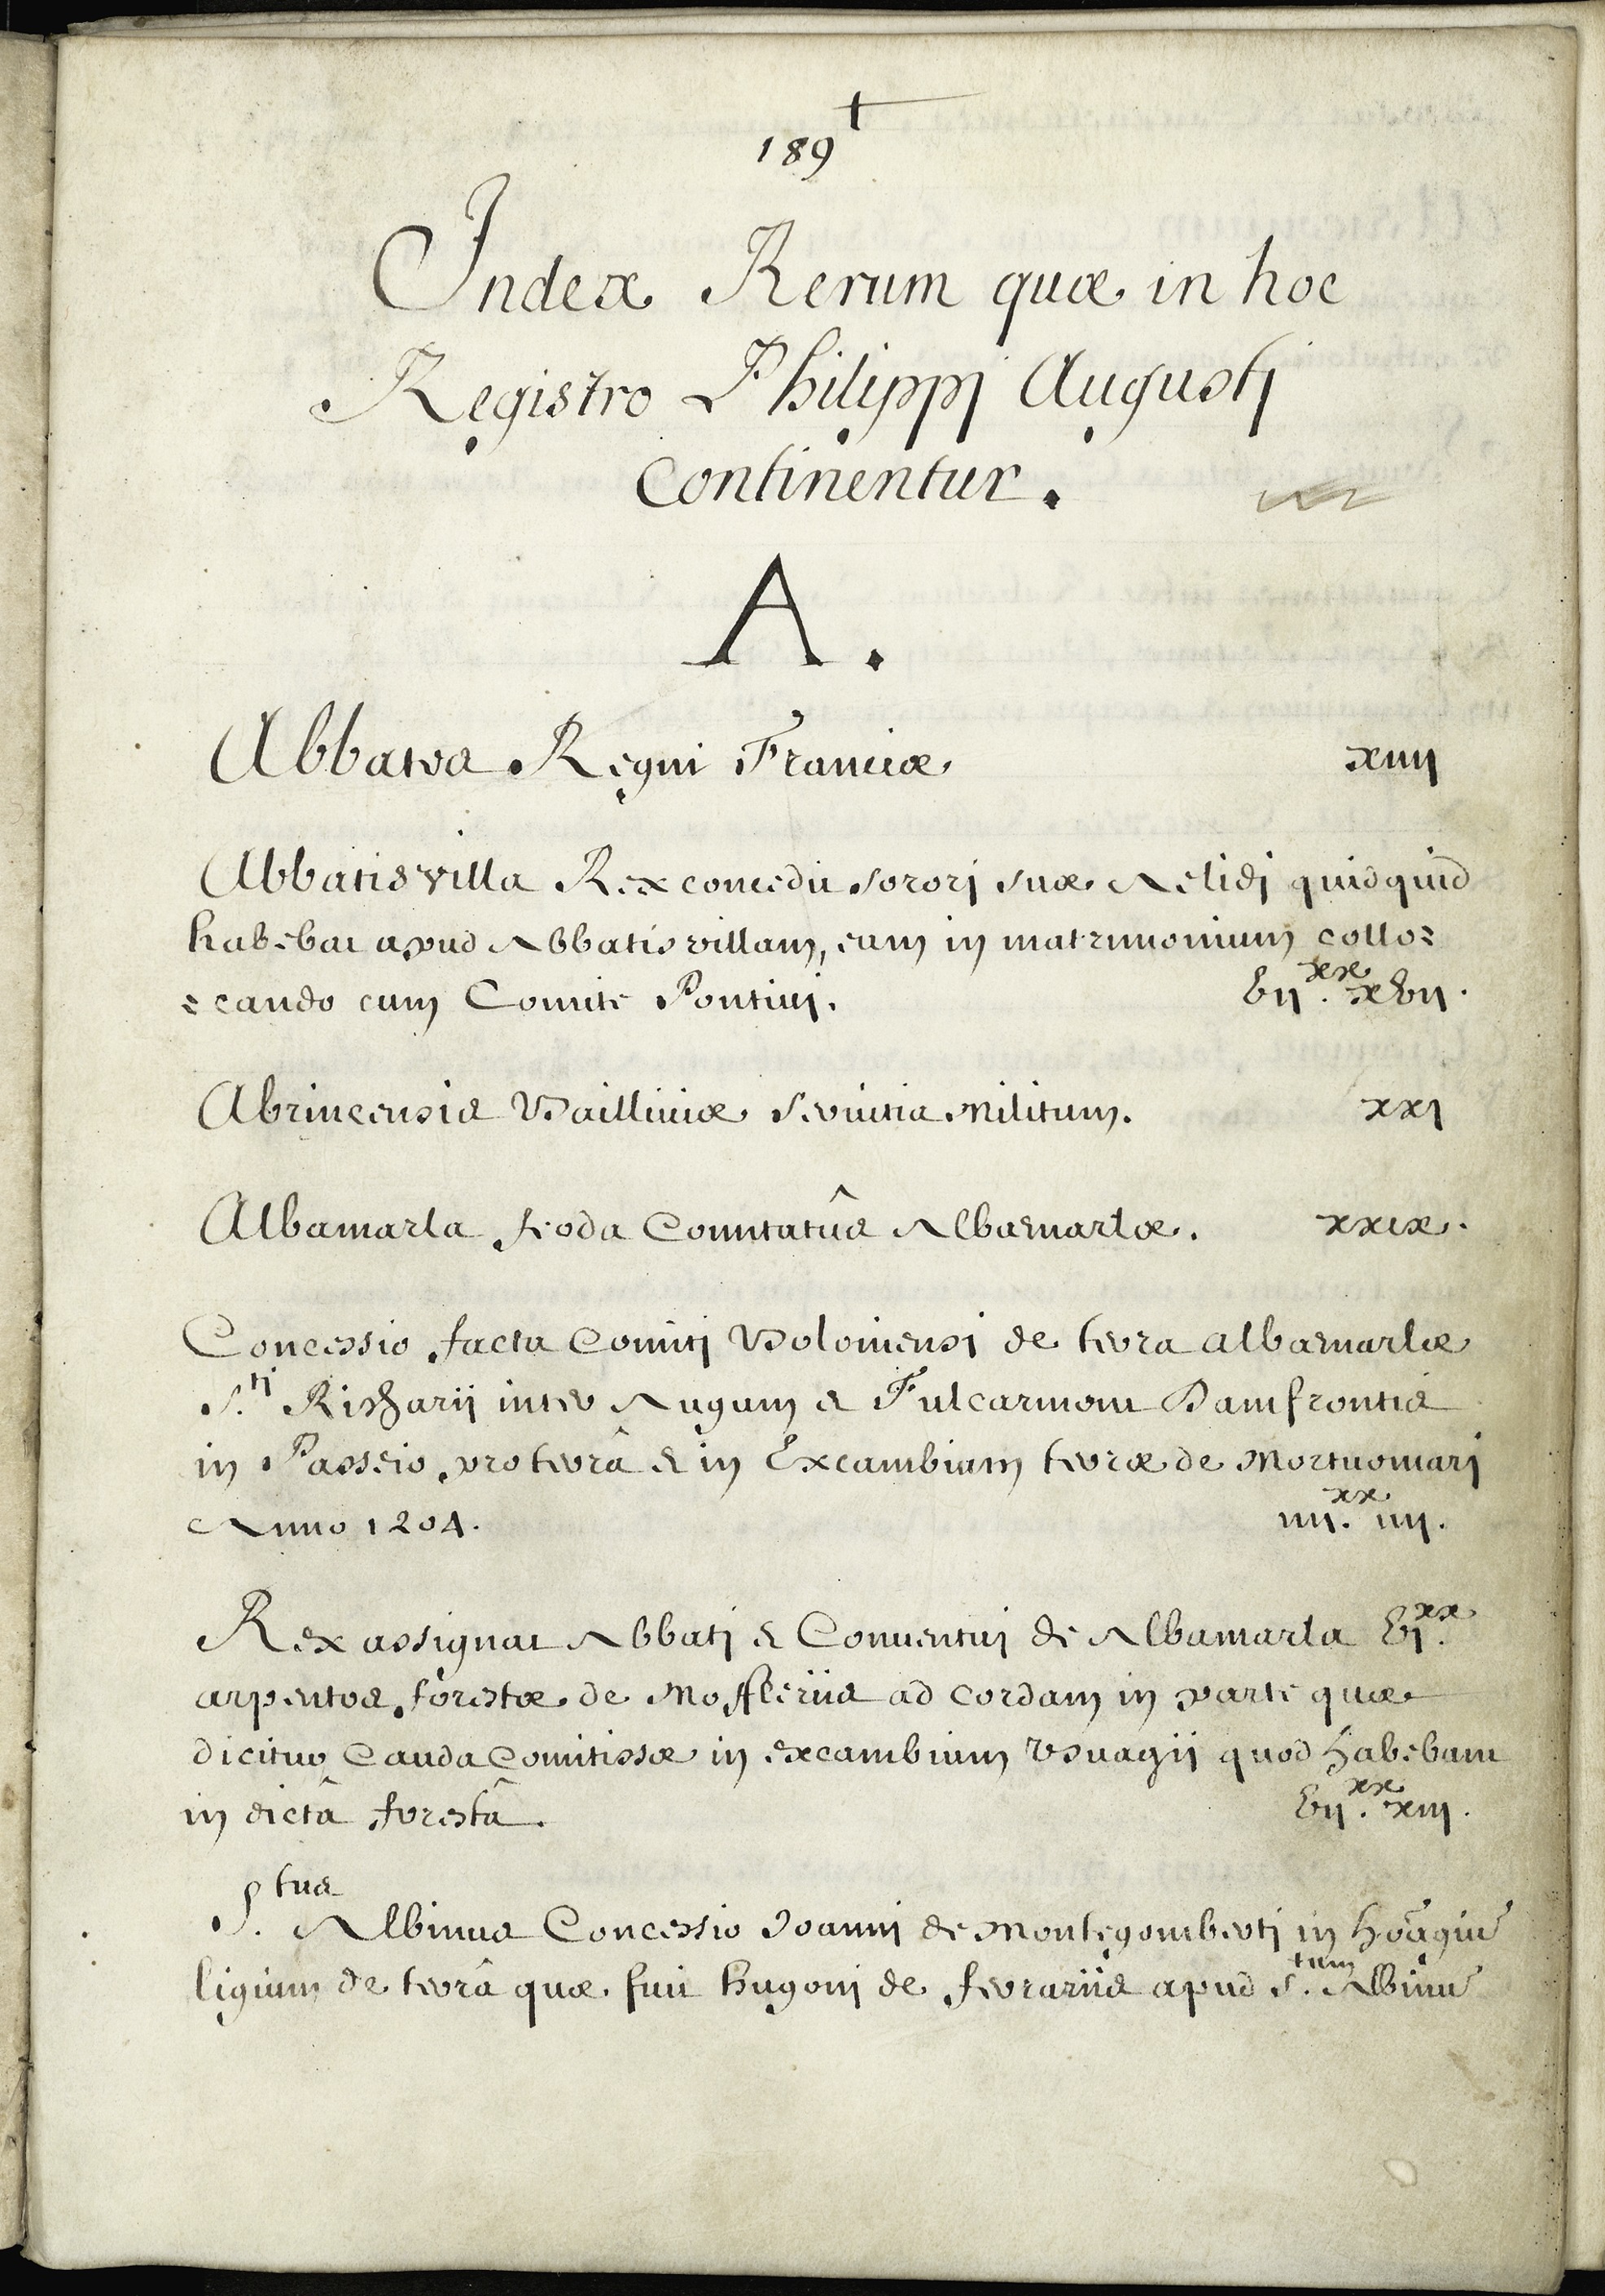 189
Index Rerum quæ in hoc
Registro Philippj Augustj
Continentur.
A.
Abbates Regni Franciæ xiiij
Abbatisvilla Rex concedit sororj suæ Aelidj quidquid
habebat apud Abbatisvillam, eam in matrimonium collo=
=cando cum Comite Pontiuj. vij.xx xvij.
Abrincensis Bailliviæ Servitia Militum. xxj
Albamarla feoda Comitatûs Albæmarlæ. xxix.
Concessio facta Comitj Boloniensi de terra Albæmarlæ
S.tj Richarij inter Augum et Fulcarmont Damfrontis
in Passeio, pro terrâ et in Excambium terræ de Mortuomarj
Anno 1204. iiij.xx iiij.
Rex assignat Abbatj et Conventuj de Albamarla vj.xx
arpentos forestæ de Mofleriis ad cordam in parte quæ
dicitur Cauda Comitissæ in excambium Vsuagij quod habebant
in dictâ forestâ. vij.xx xiij.
S.tus Albinus Concessio Joanni de Montegombertj in hōagiū
ligium de terrâ quæ fuit hugonj de ferrariis apud S.tum Albinū